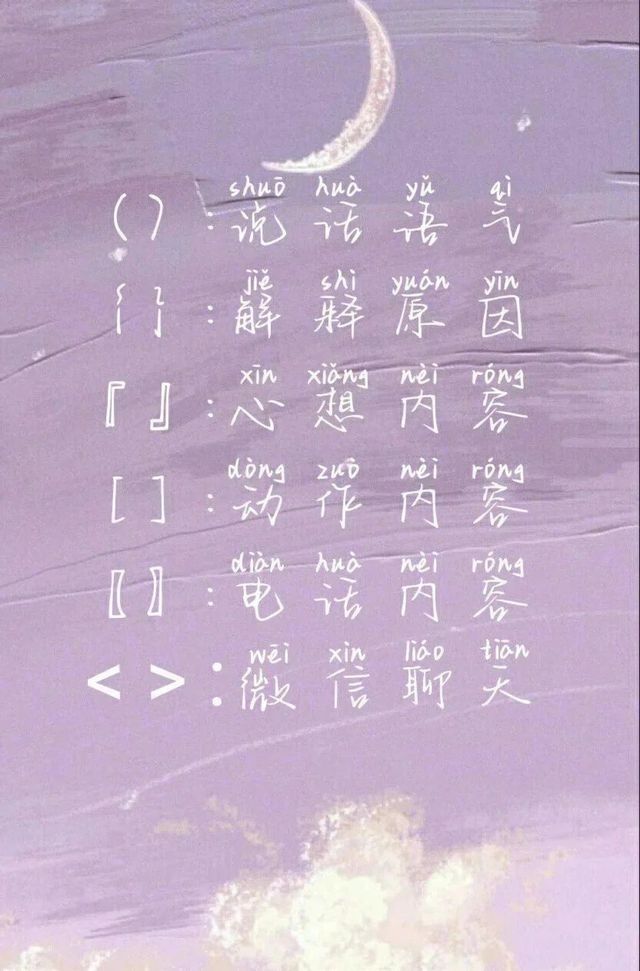 shuō huà yǔ qì
（）:说话语气
jiě shì yuán yīn
｛｝:解释原因
xīn xiǎng nèi róng
『』:心想内容
dòng zuò nèi róng
[ ]:动作内容
diàn huà nèi róng
〖〗:电话内容
wēi xìn liáo tiān
< >:微信聊天